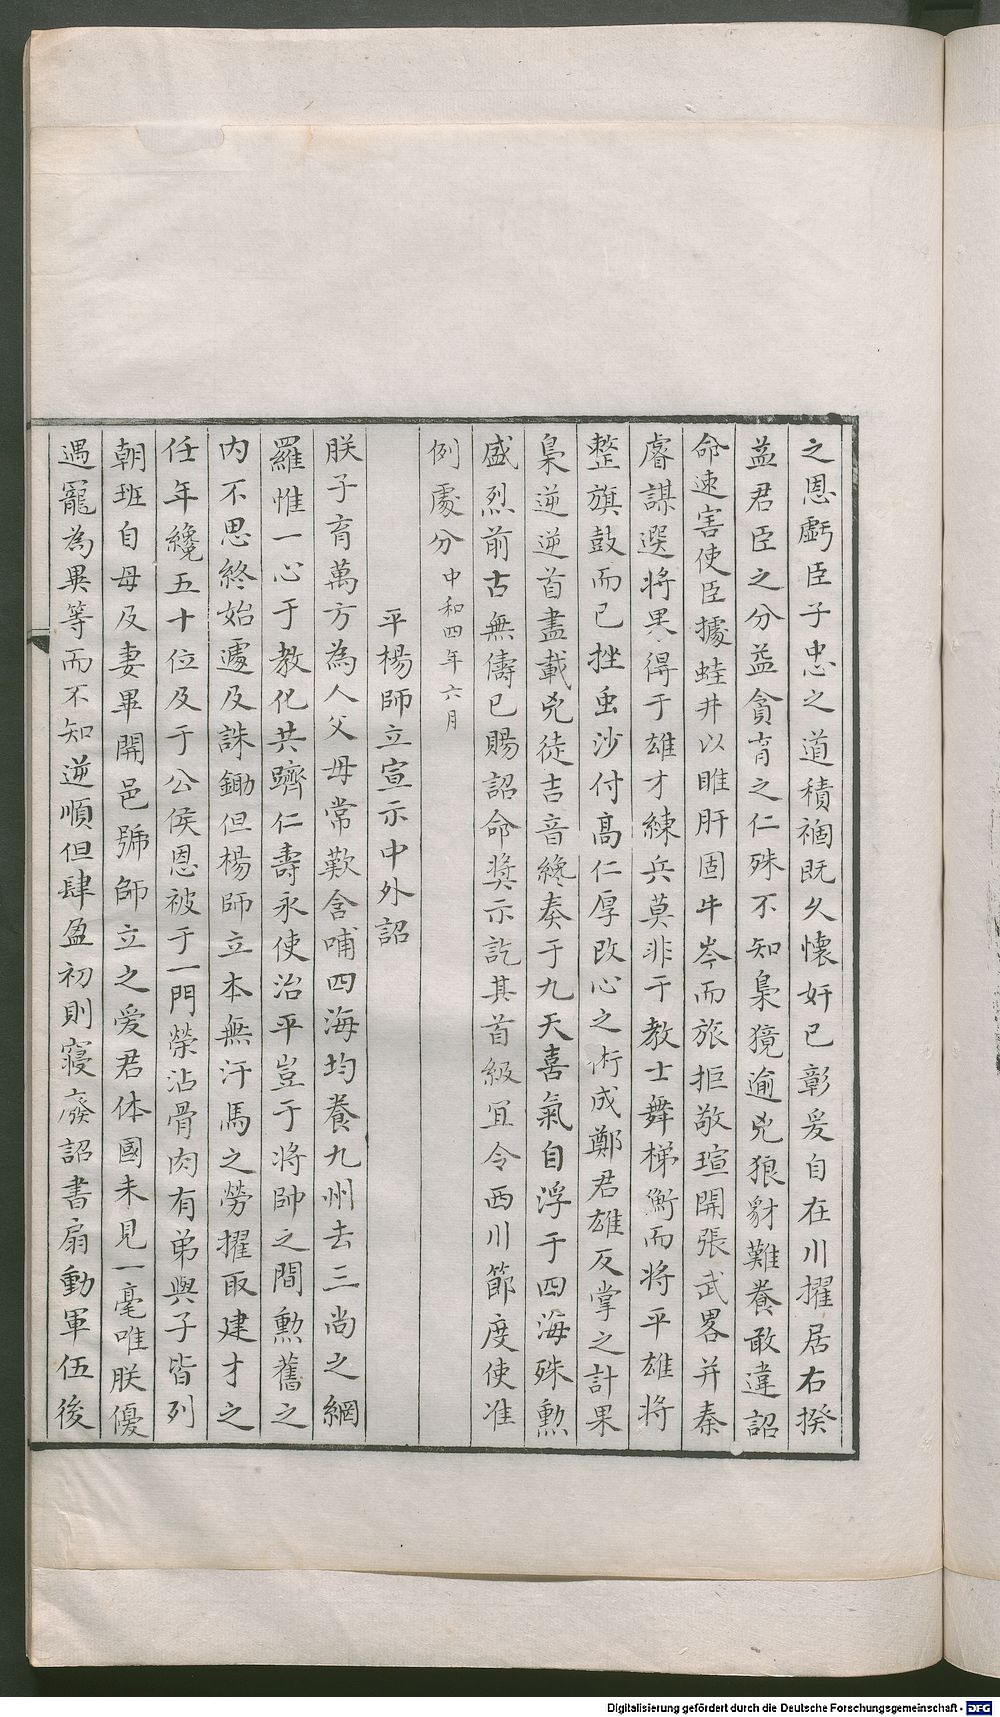 之恩虧臣子忠之道積禍既久懷奸已彰爰自在川擢居右揆
益君臣之分益貪育之仁殊不知梟獍逾兇狼豺難養敢違詔
命速害使臣據蛙井以睢盱固牛岑而旅拒敬瑄開張武畧并秦
睿謀選將果得于雄才練兵莫非于教士舞梯衝而將平雄將
整旗鼓而已挫虫沙付高仁厚改心之術成鄭君雄反掌之計果
梟逆逆首盡載兇徒吉音纔奏于九天喜氣自浮于四海殊勲
盛烈前古無儔已賜詔命奬示訖其首級宜令西川節度使准
例處分中和四年六月
平楊師立宣示中外詔
朕子育萬方為人父母常歎含哺四海均養九州去三尚之網
羅惟一心于教化共躋仁壽永使治平豈于將帥之間勲舊之
内不思終始遽及誅鋤但楊師立本無汗馬之勞擢取建才之
任年纔五十位及于公侯恩被于一門榮沾骨肉有弟與子皆列
朝班自母及妻畢開邑號師立之爱君体國未見一毫唯朕優
遇寵為異等而不知逆順但肆盈初則寢廢詔書扇動軍伍後
Digitalisierung gefördert durch die Deutsche Forschungsgemeinschaft - DFG